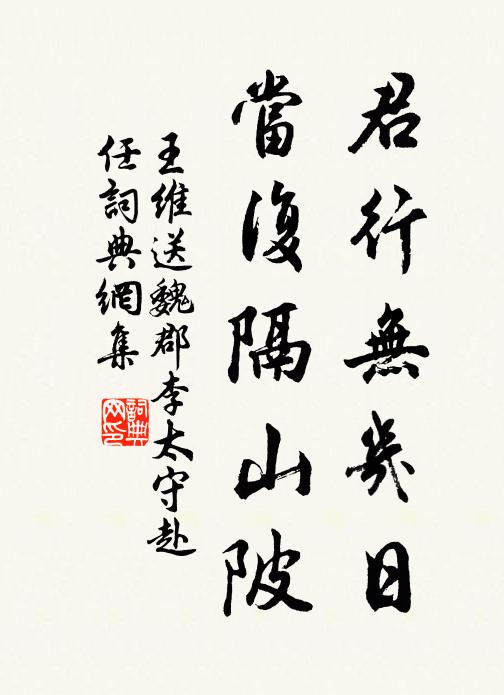 君行無幾日
當復隔山陂
王維送魏郡李太守赴
任詞典網集
詞典
网印